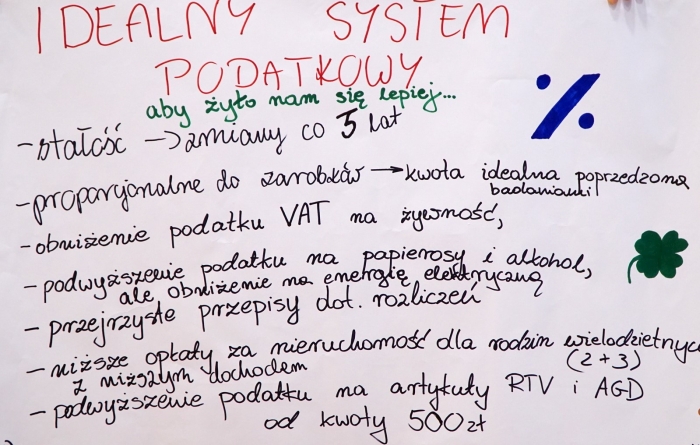 IDEALNY SYSTEM
PODATKOWY
aby żyło nam się lepiej...
- stałość → zmiany co 5 lat
- proporcjonalne do zarobków → kwota idealna poprzedzona
badaniami
- obniżenie podatku VAT na żywność,
- podwyższenie podatku na papierosy i alkohol,
ale obniżenie na energię elektryczną
- przejrzyste przepisy dot. rozliczeń
- niższe opłaty za nieruchomość dla rodzin wielodzietnyc
(2+3)
z niższym dochodem
- podwyższenie podatku na artykuły RTV i AGD
od kwoty 500 zł